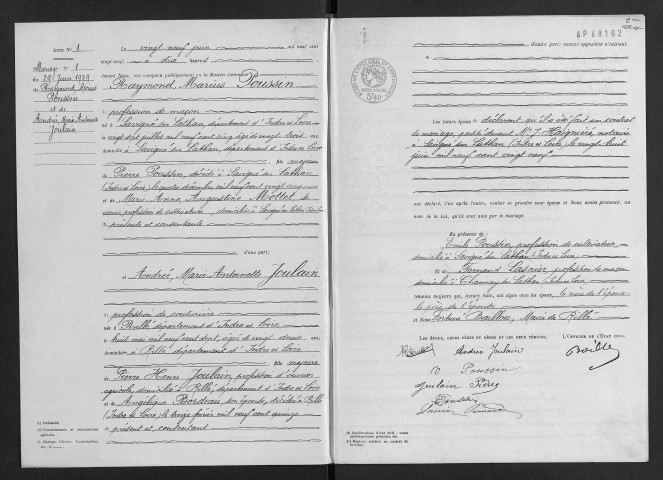 Acte N° 1
Mariage N° 1
29 Juin 1929
de Raymond, Marius
Poussin
et de
Andrée Marie Antoinette
Joulain
Le vingt neuf juin mil neuf cent
vingt neuf, à dix heures
devant Nous, ont comparu publiquement en la Maison commune
Raymond, Marius Poussin
profession de maçon
né à Savigné sur Lathan, département d'Indre et Loire
le vingt sept juillet mil neuf cent cinq âgé de vingt trois ans
domicilié à Savigné sur Lathan, département d'Indre et Loire
fils majeur
de Pierre Poussin, décédé à Savigné sur Lathan
(Indre et Loire) le quatre décembre mil neuf cent vingt cinq
et de Marie Anna Augustine Mottet, sa
veuve, profession de cultivatrice, domiciliée à Savigné
présente et consentante
d'une part;
et Andrée, Marie Antoinette Joulain
profession de couturière
née à Rillé, département d'Indre et Loire
huit mai mil neuf cent sept, âgée de vingt deux ans,
domiciliée à Rillé département d'Indre et Loire
fille majeure
de Pierre Henri Joulain, profession d'ouvrier
agricole, domicilié à Rillé, département d'Indre et Loire
et de Angélique Bordeau, son épouse, décédée à Rillé
(Indre et Loire) le treize février mil neuf cent quinze
présent et consentant
AP49162
d'autre part; aucune opposition n'existant.
5'40
Les futurs époux déclarent qu'il a été fait un contrat
de mariage, passé devant Me J. Haignière, notaire
à Savigné sur Lathan (Indre et Loire) le vingt huit
juin mil neuf cent vingt neuf
ont déclaré, l'un après l'autre, vouloir se prendre pour époux et Nous avons prononcé, au
nom de la Loi, qu'ils sont unis par le mariage.
En présence de
Emile Poussin, profession de cultivateur
domicilié à Savigné sur Lathan (Indre et Loire)
et de Fernand Lasnier, profession de maçon
domicilié à Channay sur Lathan (Indre et Loire)
témoins majeurs qui, lecture faite, ont signé avec les époux, la mère de l'époux
le père de l'épouse
et Nous Fortuné Baillou, Maire de Rillé
L'OFFICIER DE L'ÉTAT CIVIL.
Andrée Joulain
V Poussin
Joulain Père
Poussin